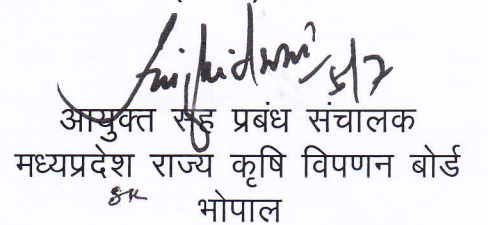 5/7
आयुक्त सह प्रबंध संचालक
मध्यप्रदेश राज्य कृषि विपणन बोर्ड
भोपाल